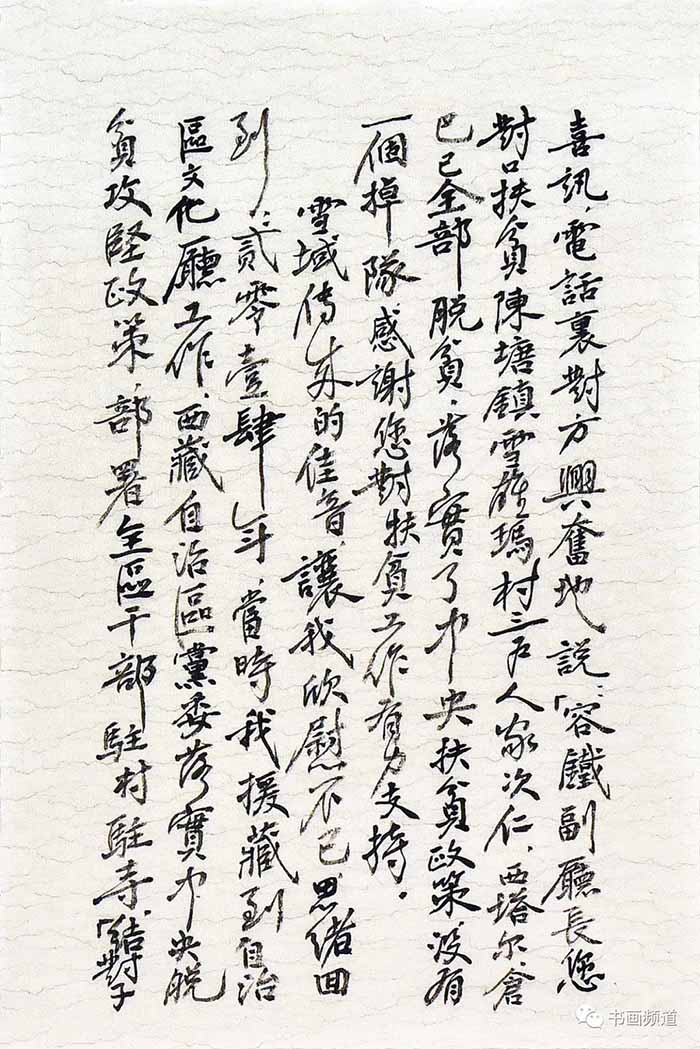 喜訊，電話裏對方興奮地説：「容鐵副廳長您
對口扶貧陳塘鎮雪薩瑪村三户人家次仁、西塔尔、倉
巴已全部脱貧，落實了中央扶貧政策，没有
一個掉隊，感謝您對扶貧工作有力支持。
雪域傳来的佳音，讓我欣慰不已，思緒回
到：貳零壹肆年，當時我援藏到自治
區文化廳工作，西藏自治區黨委落實中央脱
貧攻堅政策，部署全區干部駐村駐寺，「結對子
书画频道